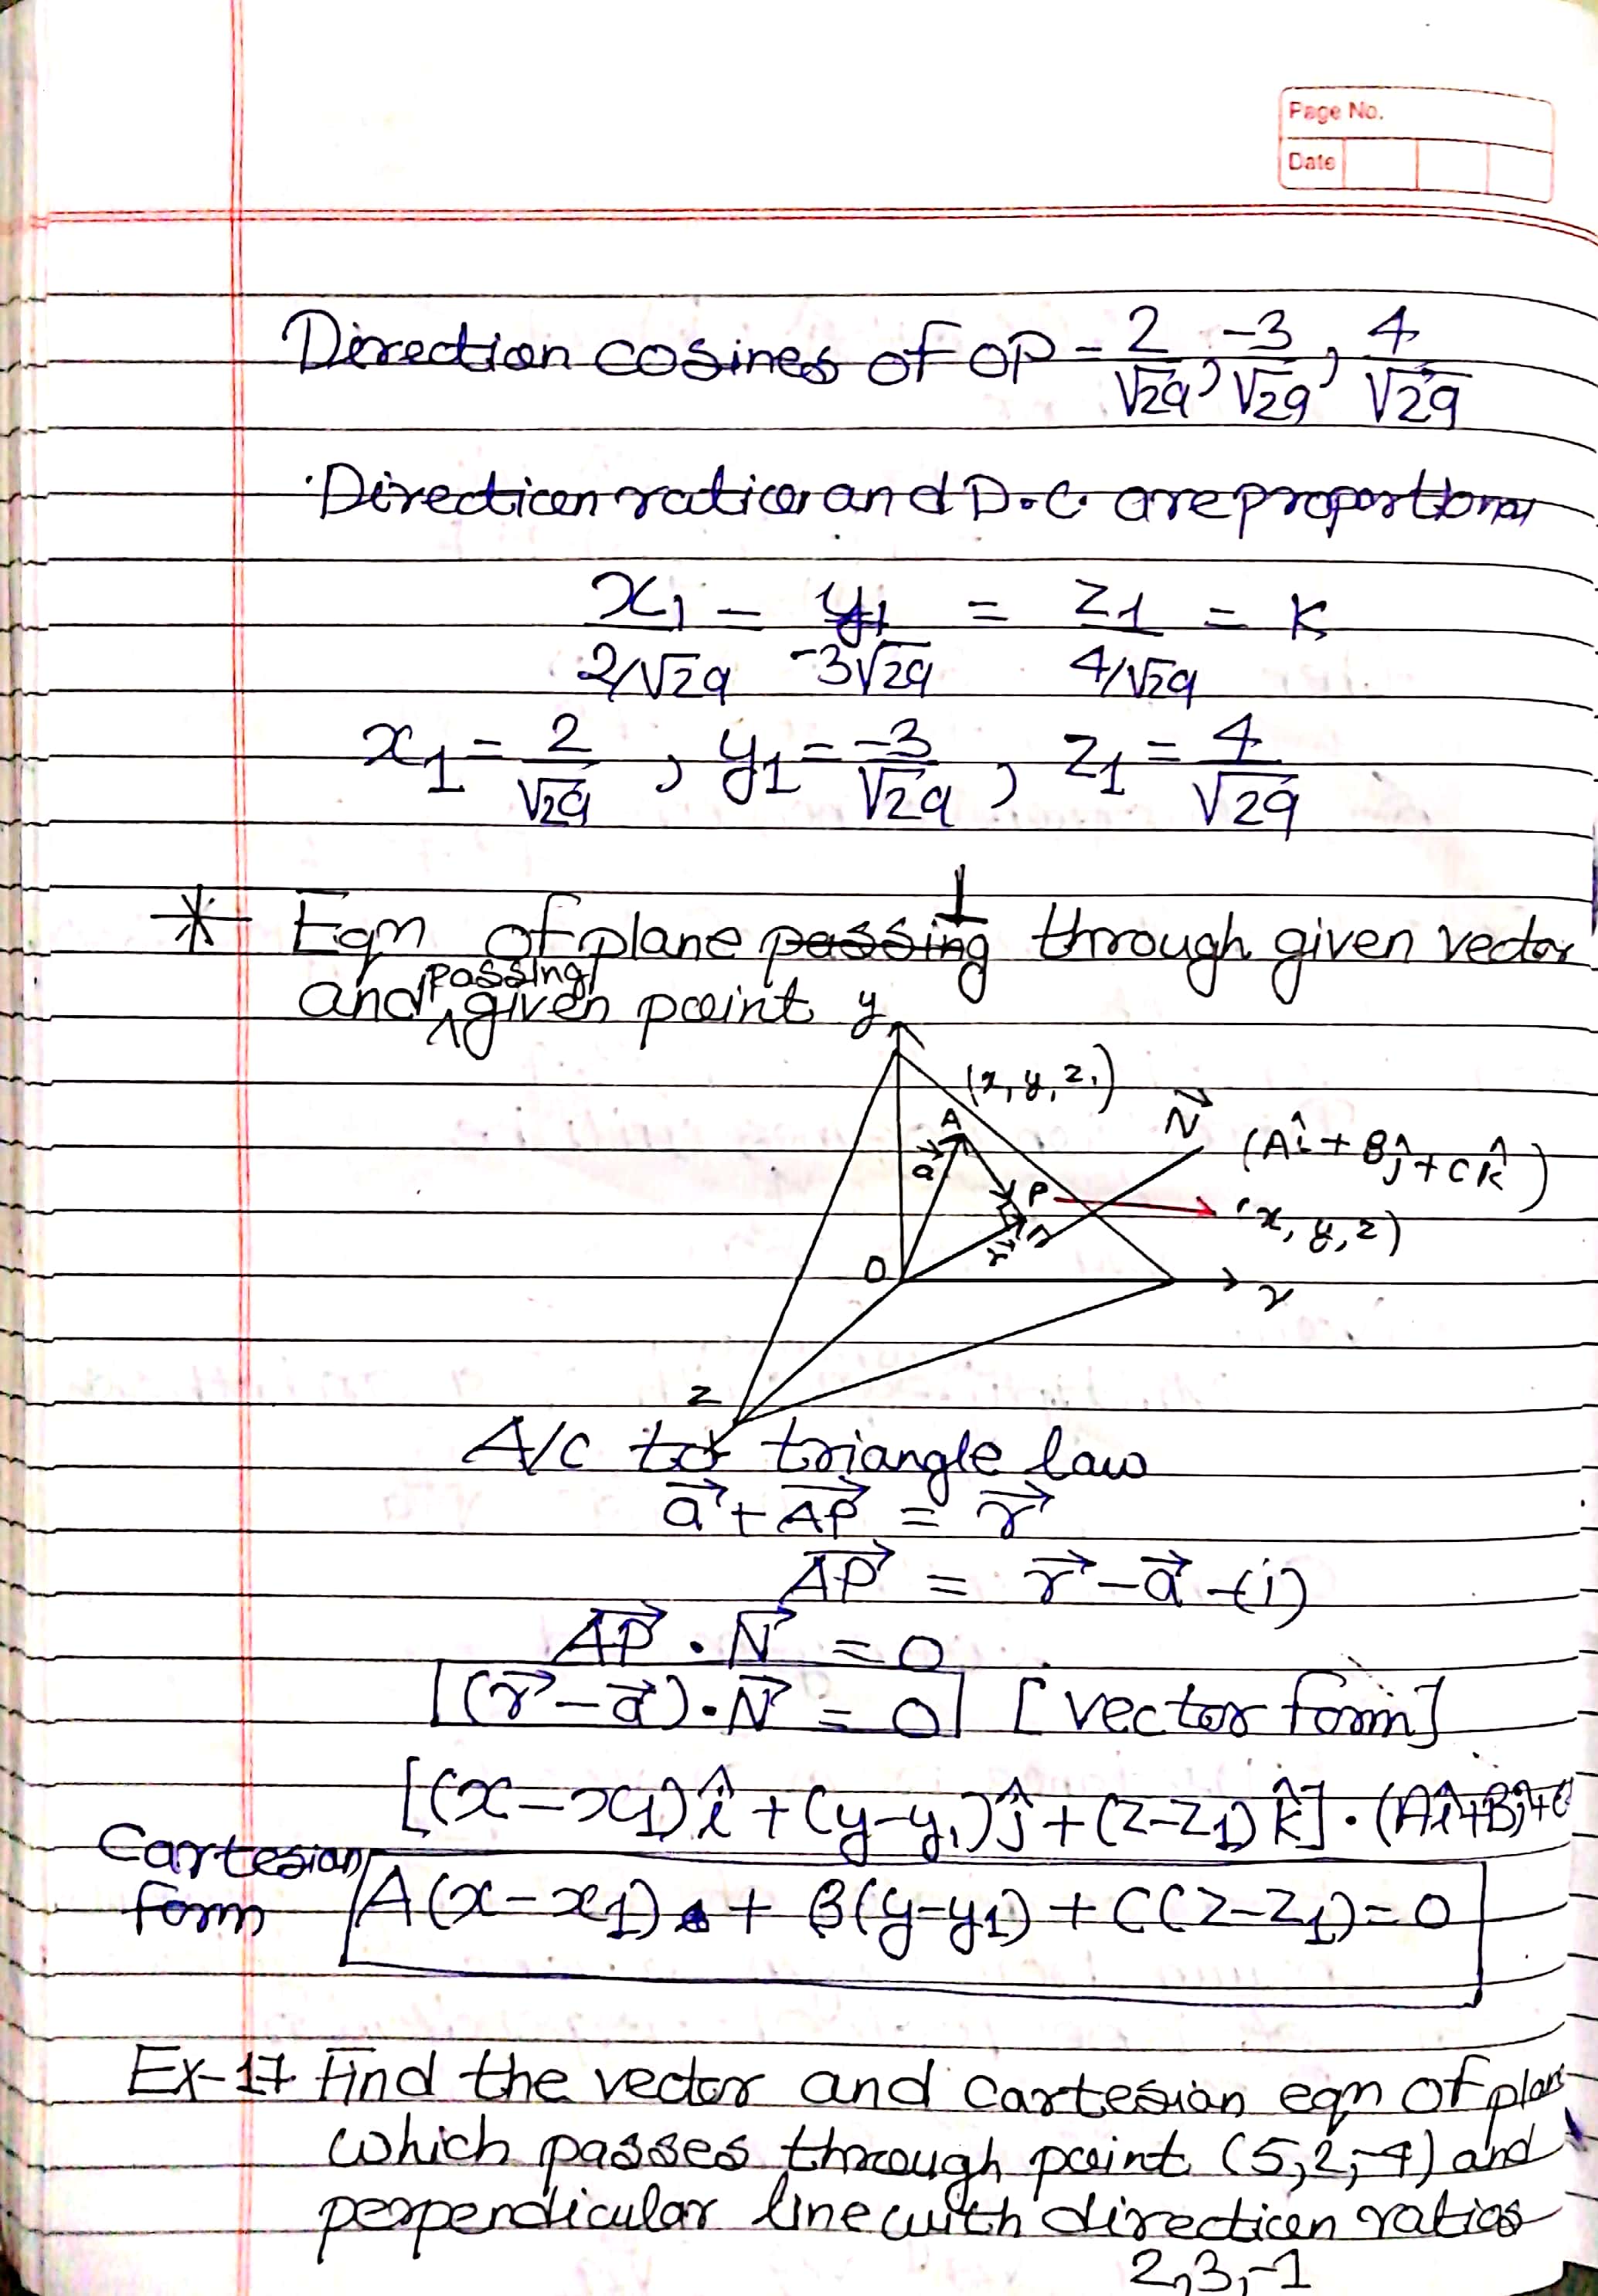 Page No.
Date
Direction cosines of OP = 2/√29, -3/√29, 4/√29
Direction ratios and D.C. are proportional
x₁/(2/√29) = y₁/(-3√29) = z₁/(4/√29) = k
x₁ = 2/√29, y₁ = -3/√29, z₁ = 4/√29
* Eqn of plane passing ⊥ through given vector
and passing given point
y
(x, y, z₁)
A
N⃗
(Aî + Bĵ + Ck̂)
a⃗
P
(x, y, z)
r⃗
O
x
z
A/C to triangle law
a⃗ + AP⃗ = r⃗
AP⃗ = r⃗ - a⃗ -(i)
AP⃗ . N⃗ = 0
(r⃗ - a⃗) . N⃗ = 0 [vector form]
[(x-x₁)î + (y-y₁)ĵ + (z-z₁)k̂] . (Aî+Bĵ+C
Cartesian form A(x-x₁) + B(y-y₁) + C(z-z₁) = 0
Ex-17 Find the vector and cartesian eqn of plan
which passes through point (5,2,-4) and
perpendicular line with direction ratios
2,3,-1